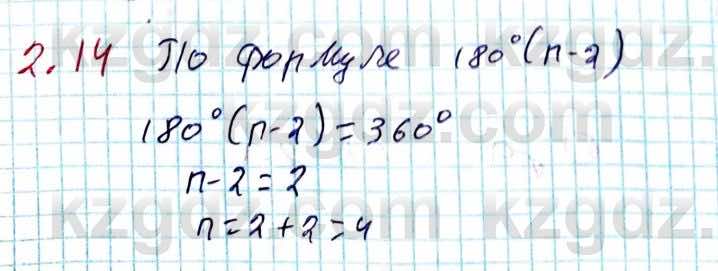 2.14 По формуле 180°(n-2)
180°(n-2)=360°
n-2=2
n=2+2=4
kzgdz.
kzgdz.
kzgdz.
kzgdz.
kzgdz.
kzgdz.